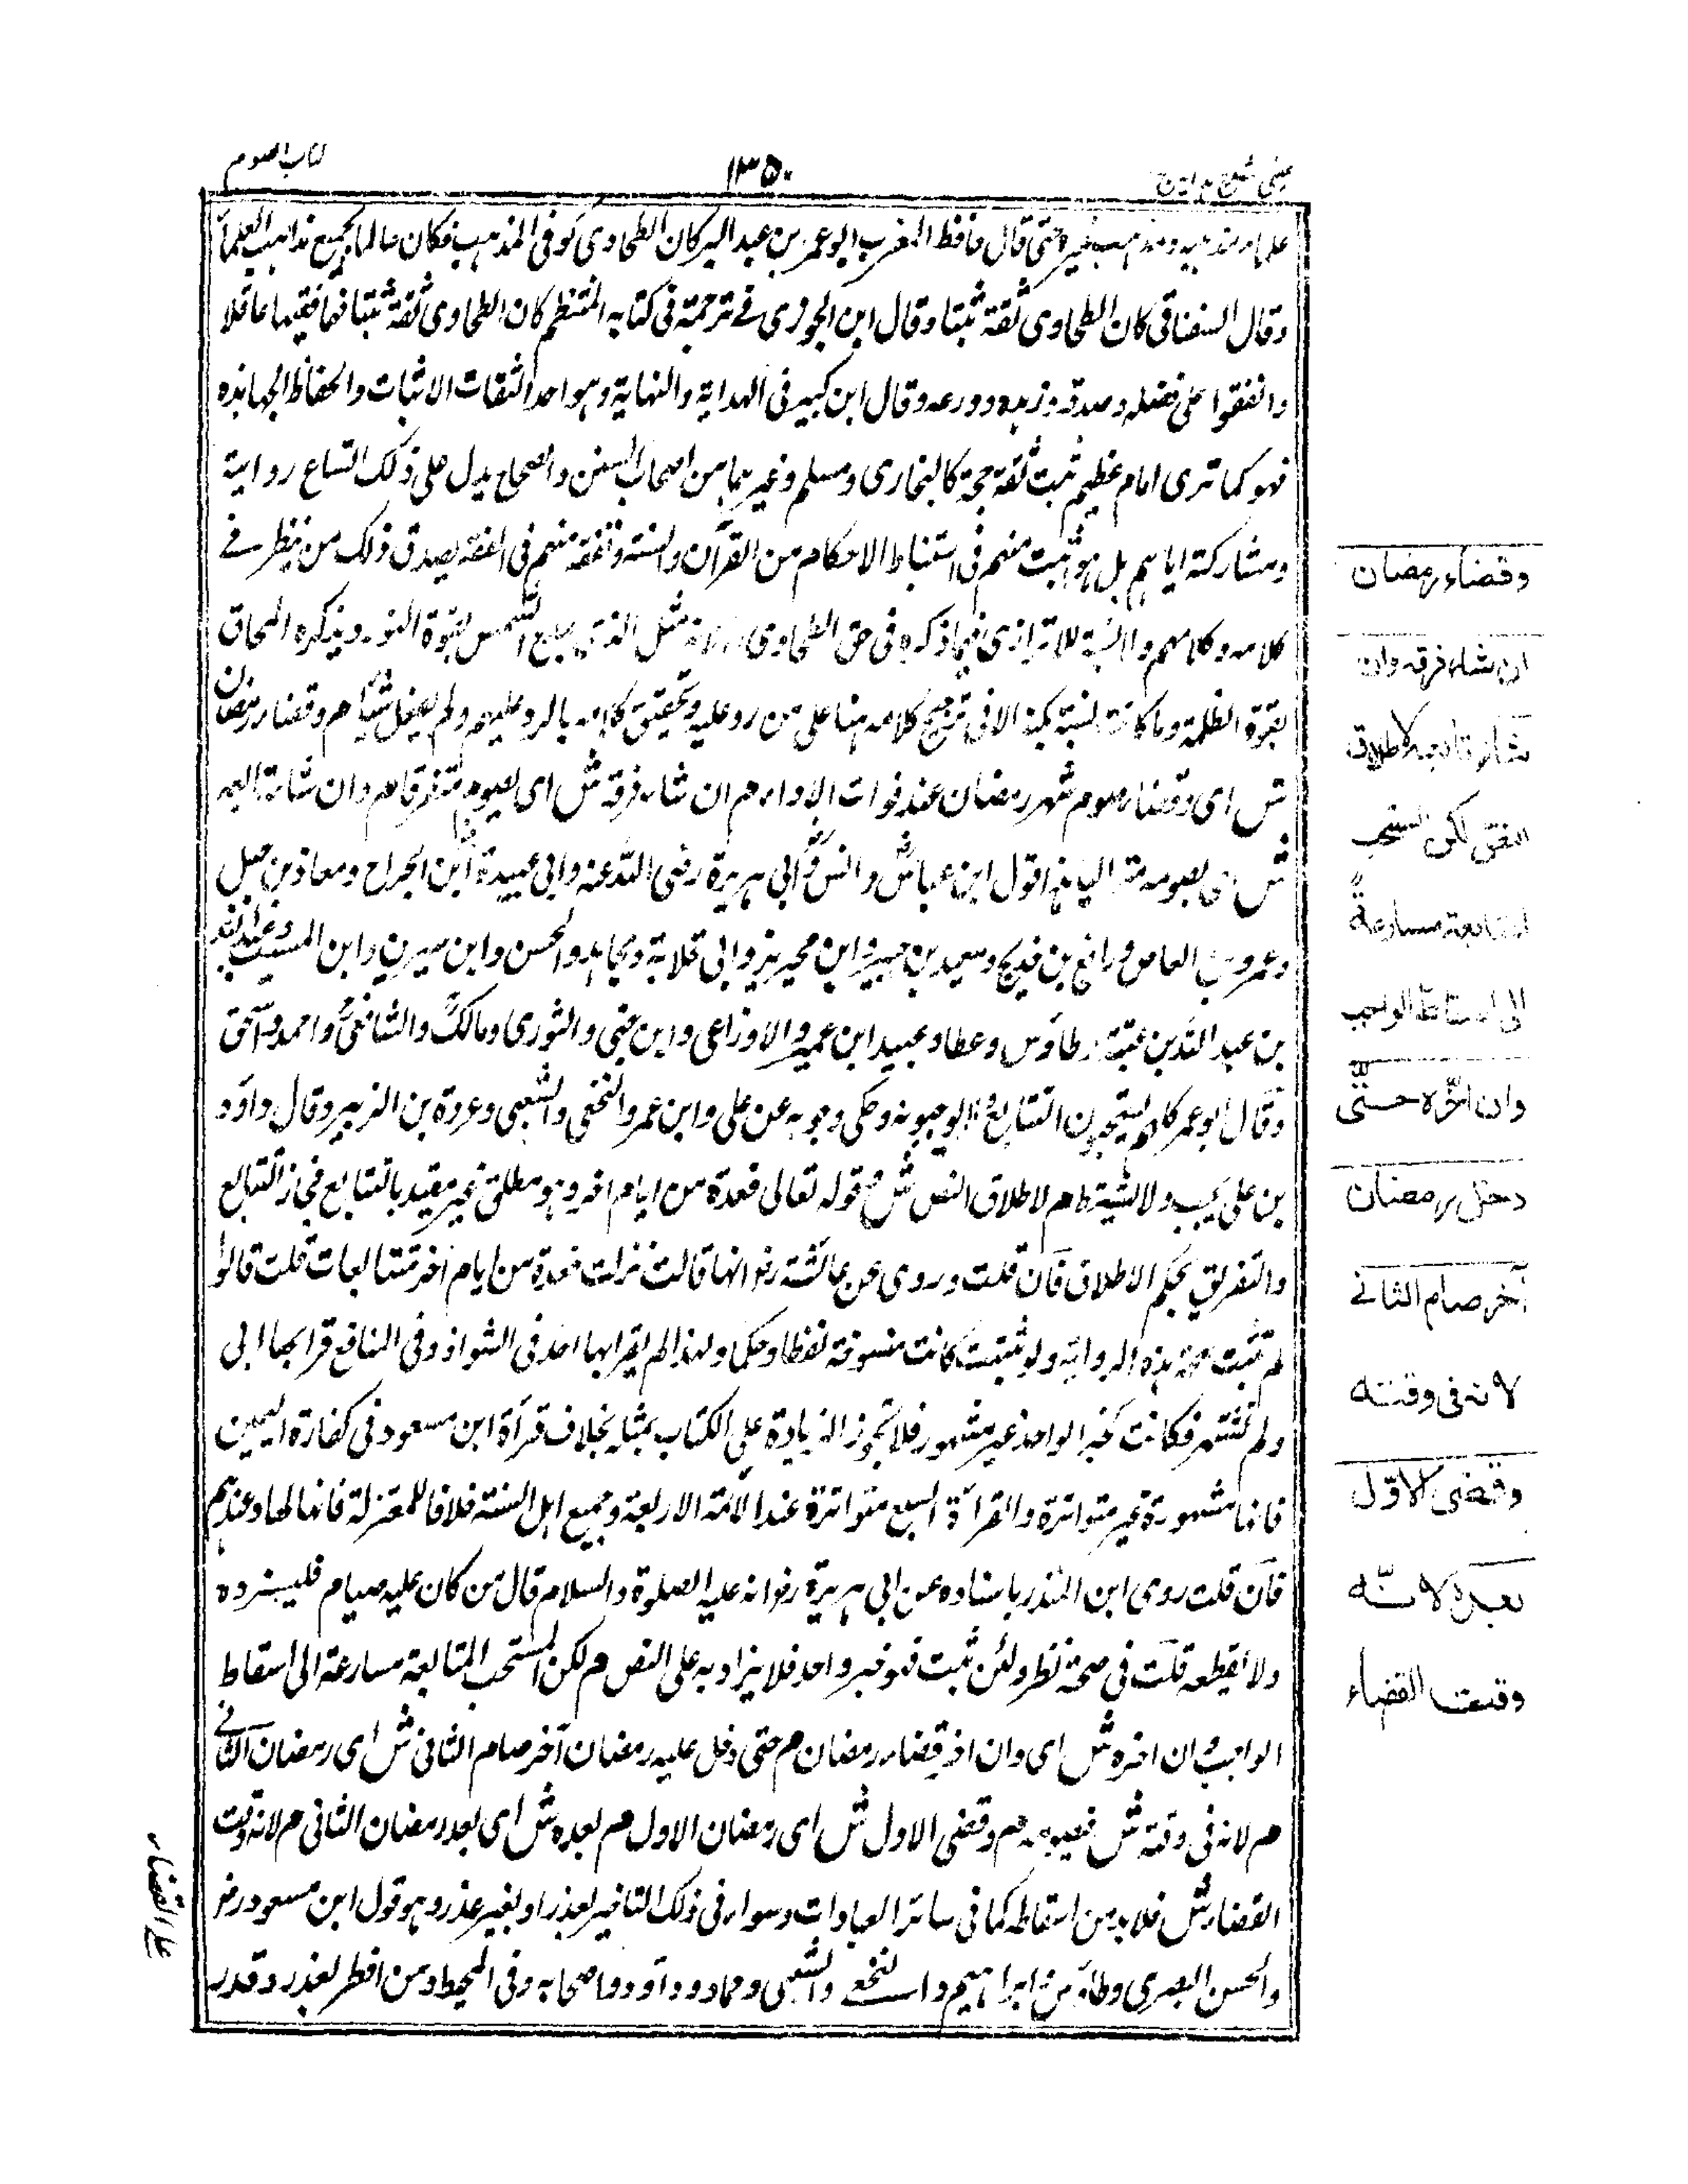 عينی شرح هدايه
١٣٥٠
كتاب الصوم
علماء مذهبه ومذهب غيره حتى قال حافظ المغرب ابو عمر بن عبد البر كان الطحاوى كوفى المذهب فكان عالما بجميع مذاهب العلماء
وقال السغناقى كان الطحاوى ثقة ثبتا وقال ابن الجوزى فى ترجمته فى كتابه المنتظم كان الطحاوى ثقة ثبتا فهما فقيها عاقلا
واتفقوا على فضله وصدقه وزهده وورعه وقال ابن كبير فى الهداية والنهاية وهو احد الثقات الاثبات والحفاظ الجهابذه
فهو كما ترى امام عظيم ثبت ثقة حجة كالبخارى ومسلم وغيرهما من اصحاب السنن والصحاح يدل على ذلك اتساع رواية
ومشاركته اياهم بل هو اثبت منهم فى استنباط الاحكام من القرآن والسنة وتفقه منهم فى الفقه يصدق ذلك من ينظر فے
كلامه وكلامهم والنسبة للاترازى فيما ذكره فى حق الطحاوى مثل الذى الشمس بقوة النور ويذكره المحاق
بقوة الظلمة وما كانت نسبة بهذه الا فى ترجيح كلامه هنا على من رد عليه وتحقيق كلامه بالرد عليهم ولم يفعل شيئا م وقضاء رمضان
ش اى وقضاء صوم شهر رمضان عند فوات الاداء م ان شاء فرقه ش اى يصومه متفرقا م وان شاء تابعه
ش اى يصومه متواليا هذا قول ابن عباس وانس وابى هريرة رضى الله عنه وابى عبيدة ابن الجراح ومعاذ بن جبل
وعمرو بن العاص ورافع بن خديج وسعيد بن جبير وابن محيريز وابى قلابة ومجاهد والحسن وابن سيرين وابن المسيب وعبد الله
بن عبد الله بن عتبة وطاؤس وعطاء وعبيد ابن عمير والاوزاعى وابن حيى والثورى ومالك والشافعى واحمد واسحق
وقال ابو عمر كلهم يستحبون التتابع ولا يوجبونه وحكى وجوبه عن على وابن عمر والنخعى والشعبى وعروة بن الزبير وقال داؤد
بن على يجب ولا يشترط م لاطلاق النص ش وهو قوله تعالى فعدة من ايام اخر وهو مطلق غير مقيد بالتتابع فجاز التتابع
والتفريق بحكم الاطلاق فان قلت وروى عن عائشة رض انها قالت نزلت فعدة من ايام اخر متتابعات قلت قالوا
لم تثبت صحة هذه الرواية ولو ثبتت كانت منسوخة لفظا وحكما ولهذا لم يقرأ بها احد فى الشواذ وفى المنافع قرأ بها ابى
ولم تشتهر فكانت كخبر الواحد غير مشهور فلا تجوز الزيادة على الكتاب بمثله بخلاف قرأة ابن مسعود فى كفارة اليمين
فانها مشهورة غير متواترة والقرأة السبع متواترة عند الائمة الاربعة وجميع اهل السنة خلافا للمعتزلة فانها احاد عندهم
فان قلت روى ابن المنذر باسناده عن ابى هريرة رض انه عليه الصلوة والسلام قال من كان عليه صيام فليسرده
ولا يقطعه قلت فى صحته نظر ولئن ثبت فهو خبر واحد فلا يزاد به على النص م لكن المستحب المتابعة مسارعة الى اسقاط
الواجب وان اخره ش اى وان اخر قضاء رمضان م حتى دخل عليه رمضان آخر صام الثانى ش اى رمضان الثانے
م لانه فى وقته ش فيصومه م وقضى الاول ش اى رمضان الاول م بعده ش اى بعد رمضان الثانى م لانه وقت
القضاء ش فلا بد من اسقاطه كما فى سائر العبادات وسواء فى ذلك التاخير لعذر او بغير عذر وهو قول ابن مسعود رض
والحسن البصرى وطاؤس وابراهيم والنخعے والشعبى وحماد وداؤد واصحابه وفى المحيط ومن افطر لعذر وقدر
على القضاء
وقضاء رمضان
ان شاء فرقه وان
شاء تابعه لاطلاق
النص لكن المستحب
المتابعة مسارعةً
الى اسقاط الواجب
وان اخّره حتّى
دخل رمضان
آخر صام الثانے
لانه فى وقته
وقضى الاوّل
بعده لانّه
وقت القضاء